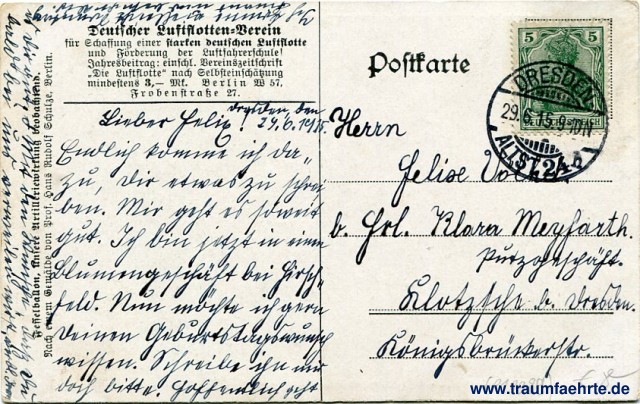 Deutscher Luftflotten-Verein
für Schaffung einer starken deutschen Luftflotte
und Förderung der Luftfahrerschule!
Jahresbeitrag: einschl. Vereinszeitschrift
"Die Luftflotte" nach Selbsteinschätzung
mindestens 3,— Mk. Berlin W 57,
Frobenstraße 27.
Dresden, den
Lieber Felix! 29.6.1915.
Endlich komme ich da-
zu, Dir etwas zu schrei-
ben. Mir geht es soweit
gut. Ich bin jetzt in einem
Blumengeschäft bei Hirsch-
feld. Nun möchte ich gern
Deinen Geburtstagswunsch
wissen. Schreibe ihn mir
doch bitte. Hoffentlich geht
Fesselballon, unsere Artilleriewirkung beobachtend.
Nach einem Gemälde von Prof. Hans Rudolf Schulze, Berlin.
Postkarte
5 5
DRESDEN
29.6.15.9-10V
ALTST. 24
Herrn
b. Frl. Klara Meyfarth.
Putzgeschäft.
Klotzsche b. Dresden.
Königsbrückerstr.
www.traumfaehrte.de